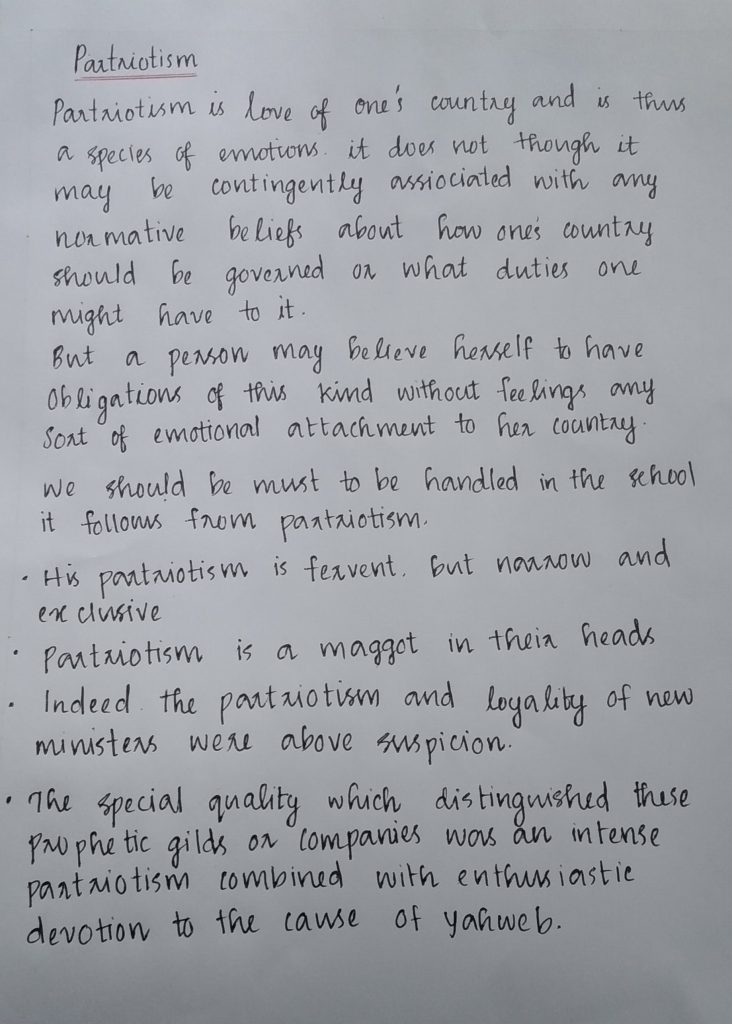 Partriotism
Partriotism is love of one's country and is thus
a species of emotions. it does not though it
may be contingently assiociated with any
normative beliefs about how one's country
should be governed or what duties one
might have to it.
But a person may believe herself to have
obligations of this kind without feelings any
Sort of emotional attachment to her country.
We should be must to be handled in the school
it follows from partriotism.
• His partriotism is fervent. but narrow and
exclusive
• Partriotism is a maggot in their heads
• Indeed the partriotism and loyality of new
ministers were above suspicion.
• The special quality which distinguished these
prophetic gilds or companies was an intense
partriotism combined with enthusiastic
devotion to the cause of yahweb.